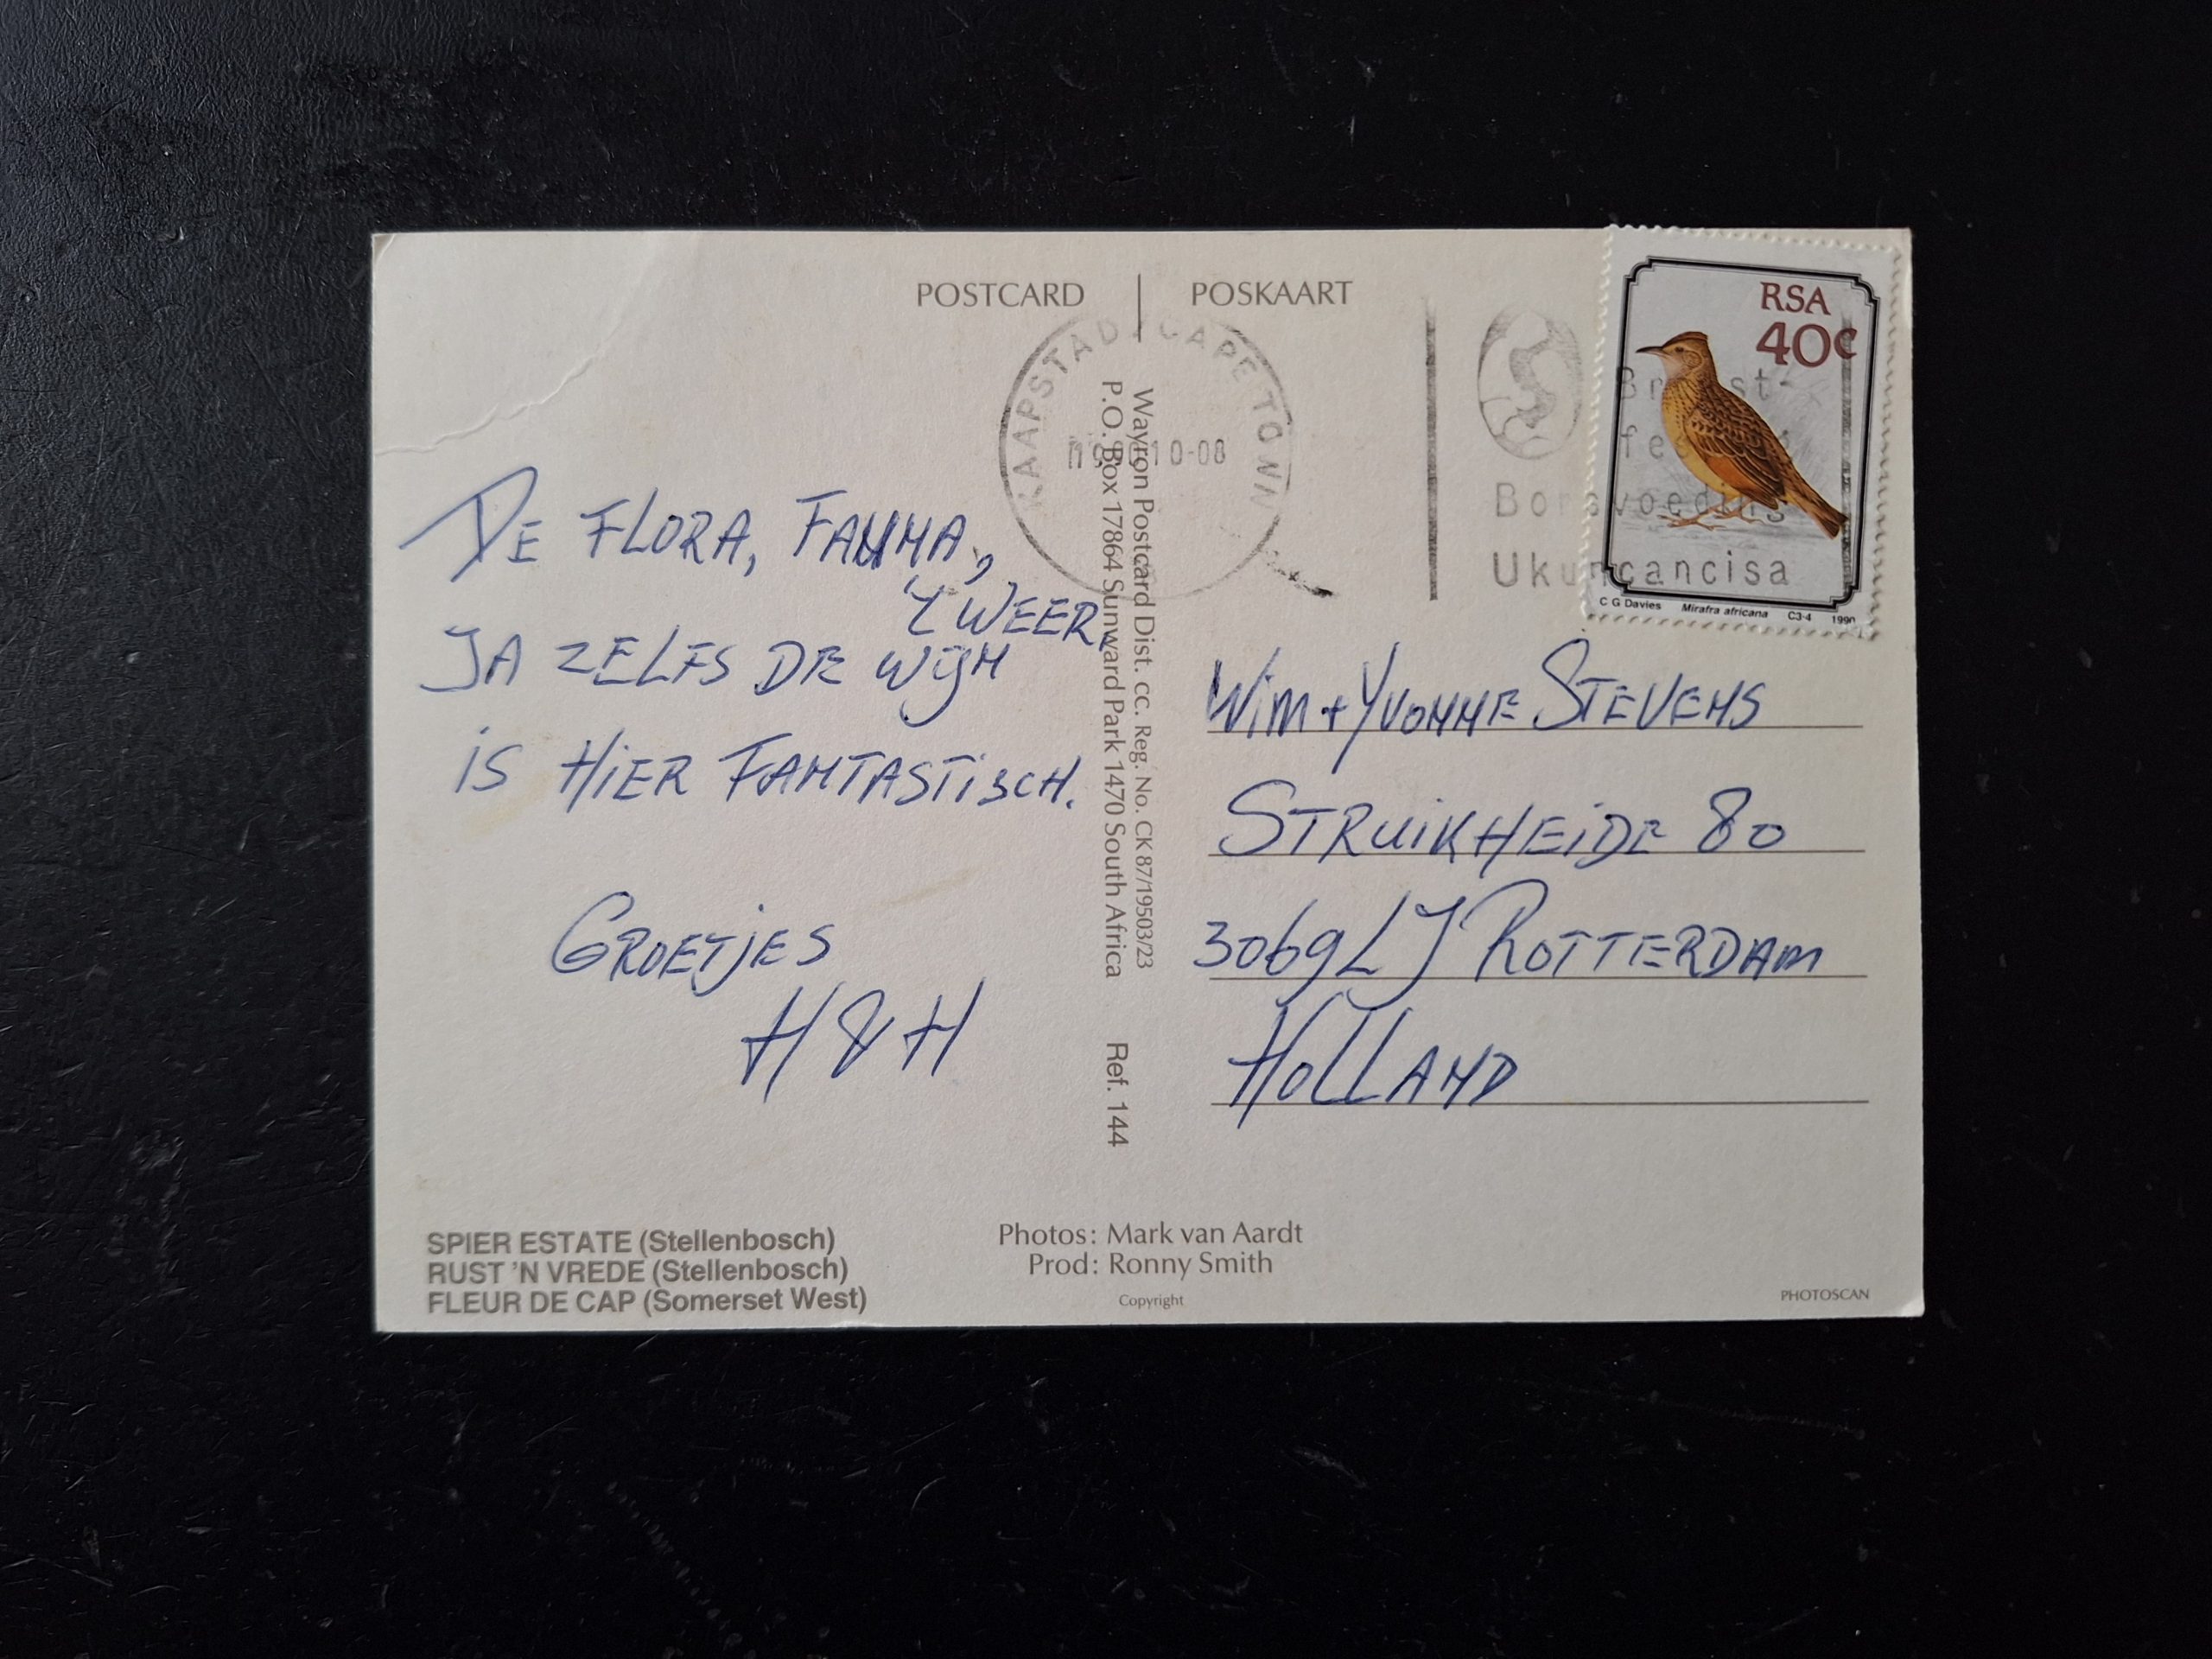 POSTCARD | POSKAART
KAAPSTAD · CAPE TOWN
10-08
RSA
40c
Borsvoeding
Ukuncancisa
C G Davies Mirafra africana C3-4 1990
DE FLORA, FAUNA,
'T WEER,
JA ZELFS DE WIJN
IS HIER FANTASTISCH.
GROETJES
H & H
Wayron Postcard Dist. cc. Reg. No. CK 87/19503/23
P.O. Box 17864 Sunward Park 1470 South Africa Ref. 144
WIM + YVONNE STEVENS
STRUIKHEIDE 80
3069 LJ ROTTERDAM
HOLLAND
SPIER ESTATE (Stellenbosch)
RUST 'N VREDE (Stellenbosch)
FLEUR DE CAP (Somerset West)
Photos: Mark van Aardt
Prod: Ronny Smith
Copyright
PHOTOSCAN